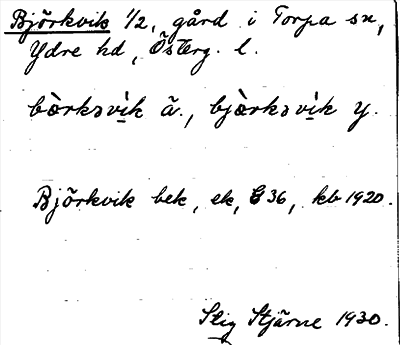 Björkvik 1/2, gård i Torpa sn,
Ydre hd, Österg. l.
bœ̀rkəvi̬k ä., bjœ̀rkəvi̬k y.
Björkvik bek, ek, G 36, kb 1920.
Stig Stjärne 1930.